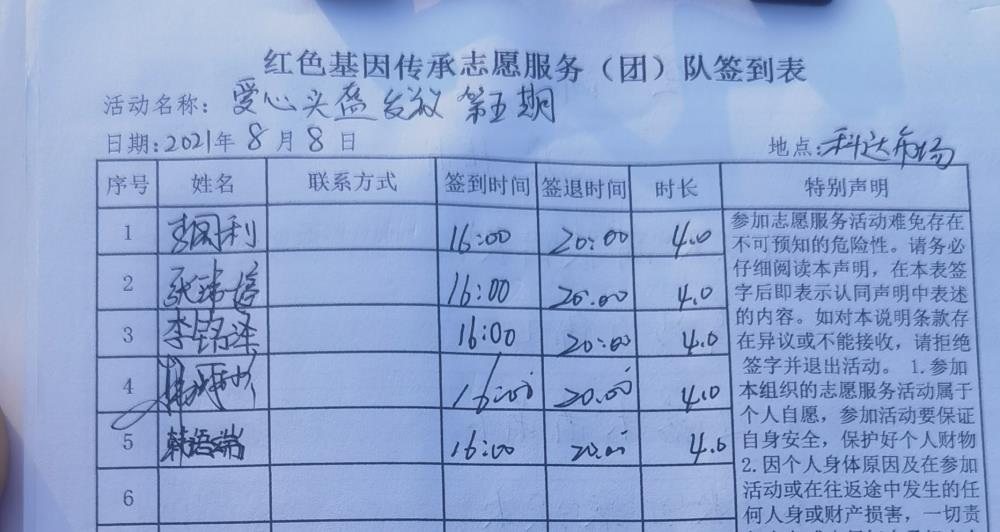 红色基因传承志愿服务（团）队签到表
活动名称：爱心头盔发放 第五期
日期：2021年 8 月 8 日
地点：科达市场
序号 姓名 联系方式 签到时间 签退时间 时长 特别声明
1 16:00 20:00 4.0
2 16:00 20:00 4.0
3 李铭泽 16:00 20:00 4.0
4 16:00 20:00 4.0
5 韩语端 16:00 20:00 4.0
6
参加志愿服务活动难免存在
不可预知的危险性。请务必
仔细阅读本声明，在本表签
字后即表示认同声明中表述
的内容。如对本说明条款存
在异议或不能接收，请拒绝
签字并退出活动。 1.参加
本组织的志愿服务活动属于
个人自愿，参加活动要保证
自身安全，保护好个人财物
2.因个人身体原因及在参加
活动或在往返途中发生的任
何人身或财产损害，一切责